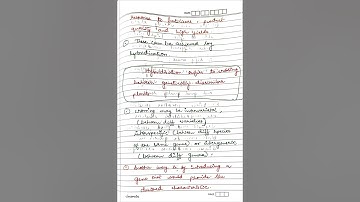 response to fertilisers, product
quality and high yields
These can be achieved by
hybridisation
Hybridisation refers to crossing
between genetically dissimilar
plants
Crossing may be intervarietal
(between diff varieties)
interspecific (between diff species
of the same genus) or intergeneric
(between diff genera)
Another way is by introducing a
gene that would provide the
desired characteristic